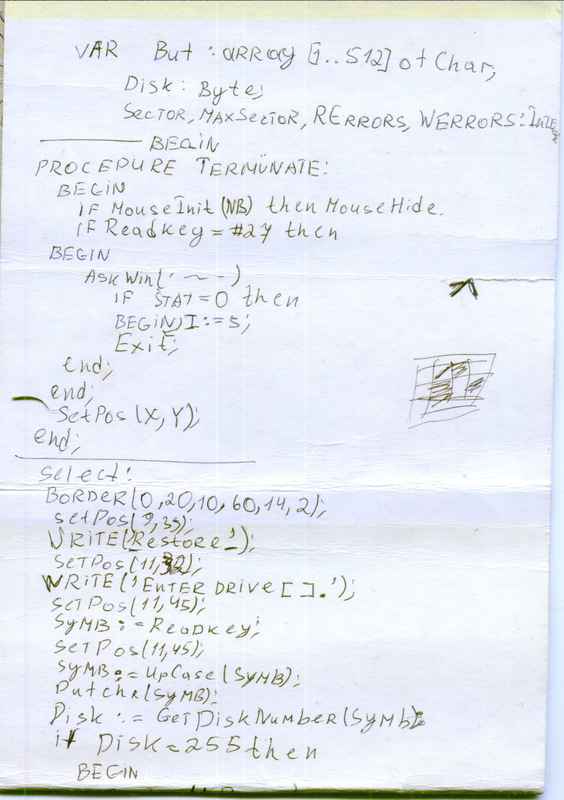 VAR But : array [1..512] of Char;
Disk : Byte;
SECTOR, MAXSECTOR, RERRORS, WERRORS:
BEGIN
PROCEDURE TERMINATE:
BEGIN
IF MouseInit (NB) then MouseHide.
IF Readkey = #27 then
BEGIN
Ask Win(' ~ -)
IF STAT = 0 then
BEGIN I := 5;
Exit;
end;
end;
SetPos (X, Y);
end;
Select:
BORDER(0,20,10,60,14,2);
SetPos(9,35);
WRITE('Restore');
SETPOS(11,32);
WRITE('ENTER DRIVE [ ].');
SETPOS(11,45);
SYMB := ReadKey;
SETPOS(11,45);
SYMB := UpCase (SYMB);
Putchr(SYMB);
Disk := GetDiskNumber(Symb);
if Disk = 255 then
BEGIN